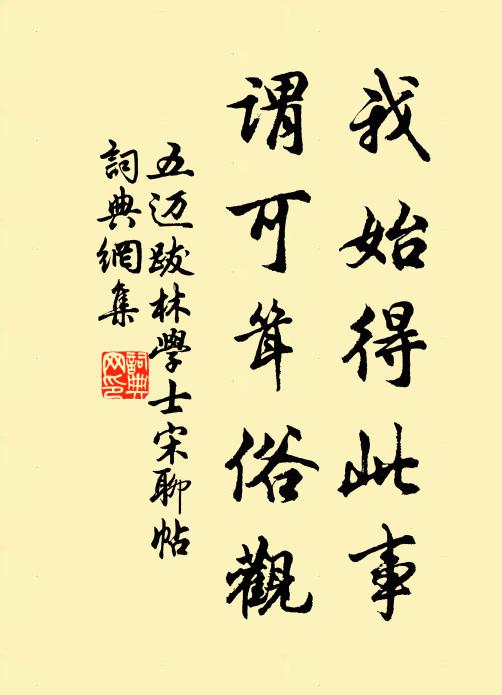 我始得此事
謂可聳俗觀
五迈跋林學士宋聊帖
詞典網集
詞典
网印